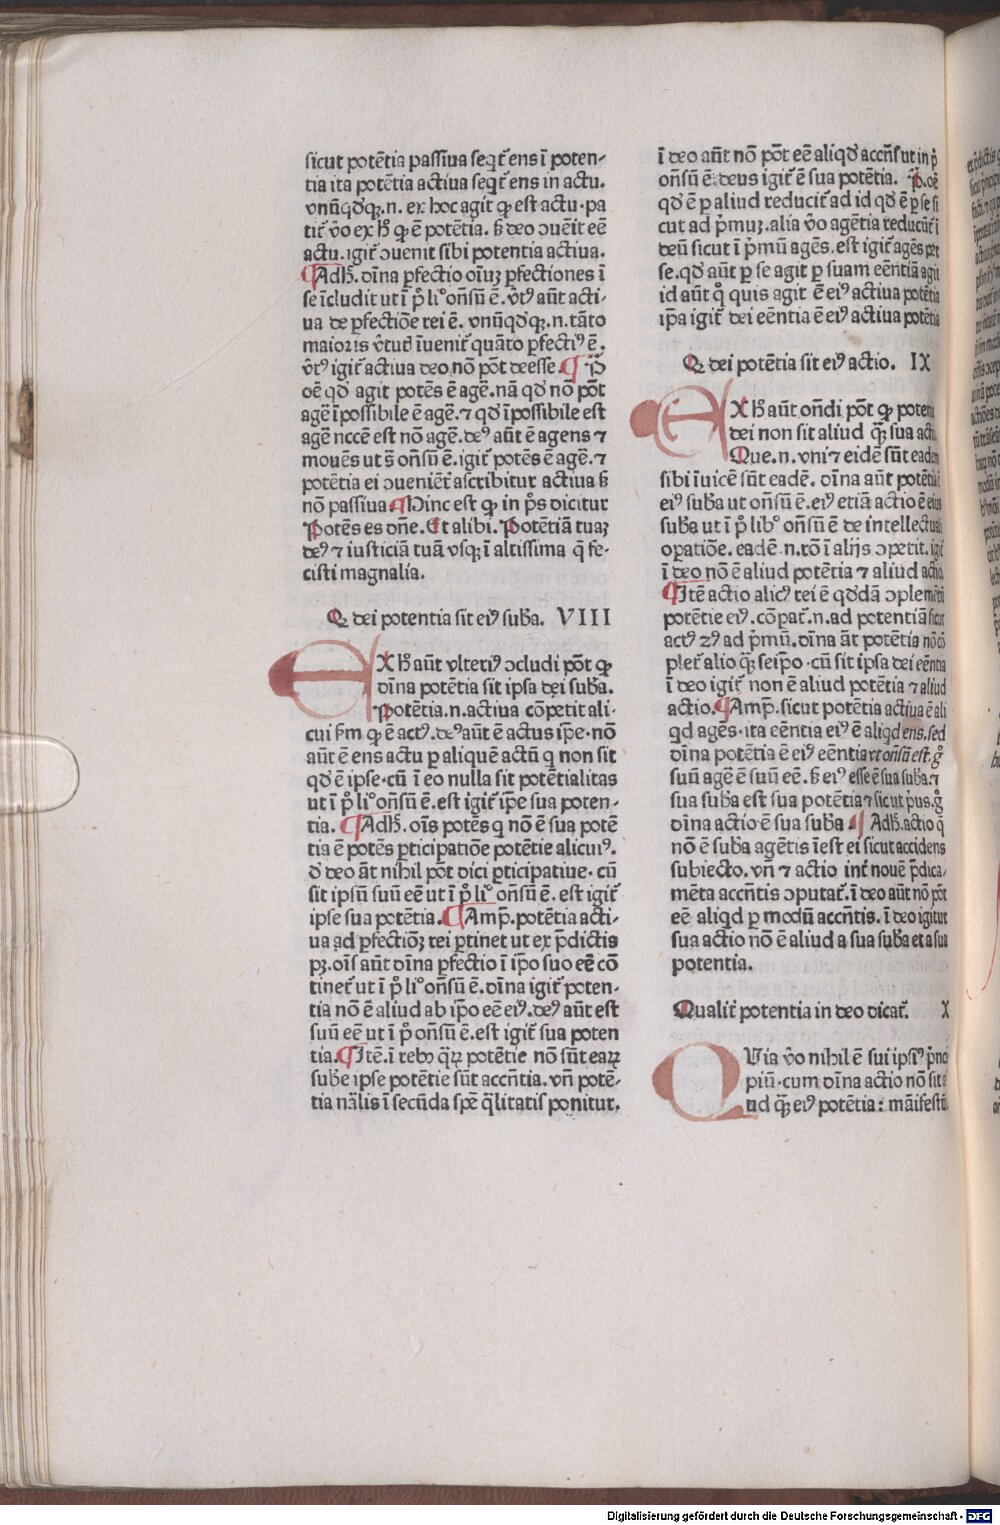 sicut potētia passiua seqt̄ ens ī poten-
tia ita potētia actiua seqt̄ ens in actu.
vnūqďqꝫ.n. ex hoc agit ꝙ est actu. pa
tit̄ v̄o ex ħ ꝙ ē potētia. ẞ deo ɔuēit eē
actu. igit̄ ɔuenit sibi potentia actiua.
¶ Adħ. diīna ꝑfectio oīuꝫ ꝑfectiones ī
se īcludit ut ī pͦ liͦ onſū ē. v̄tꝰ aūt acti-
ua de ꝑfectiōe rei ē. vnūqďqꝫ.n. tāto
maioris v̄tuď īuenit̄ quāto ꝑfectiꝰ ē.
v̄tꝰ igit̄ actiua deo nō pōt deesse. ¶ P̄
oē qď agit potēs ē agē. nā qď nō pōt
agē īpossibile ē agē. ⁊ qď īpossibile est
agē nccē est nō agē. deꝰ aūt ē agens ⁊
mouēs ut s̄ onſū ē. igit̄ potēs ē agē. ⁊
potētia ei ɔueniēt̄ ascribitur actiua ẞ
nō passiua ¶ Hinc est ꝙ in p̄s dicitur
Potēs es dn̄e. Et alibi. Potētiā tuaꝫ
deꝰ ⁊ iusticiā tuā vsqꝫ ī altissima q̄ fe-
cisti magnalia.
Q dei potentia sit eiꝰ suba. VIII
EX ħ aūt vlteriꝰ ɔcludi pōt ꝙ
diīna potētia sit ipsa dei suba.
Potētia.n. actiua cōpetit ali-
cui ẜm ꝙ ē actꝰ. deꝰ aūt ē actus ip̄e. nō
aūt ē ens actu ꝑ aliquē actū q non sit
qď ē ipse. cū ī eo nulla sit potētialitas
ut ī pͦ liͦ onſū ē. est igit̄ ip̄e sua poten-
tia. ¶ Adħ. oīs potēs q nō ē sua potē
tia ē potēs ꝑticipatiōe potētie alicuiꝰ.
ď deo āt nihil pōt dici ꝑticipatiue. cū
sit ipsū suū eē ut ī pͦ liͦ onſū ē. est igit̄
ipse sua potētia. ¶ Amp̄. potētia acti-
ua ad ꝑfectiōꝫ rei ꝑtinet ut ex p̄dictis
pꝫ. oīs aūt diīna ꝑfectio ī ip̄o suo eē cō
tinet̄ ut ī pͦ liͦ onſū ē. diīna igit̄ poten-
tia nō ē aliud ab ip̄o eē eiꝰ. deꝰ aūt est
suū eē ut ī pͦ onſū ē. est igit̄ sua poten
tia. ¶ Itē. ī rebꝰ q̄ꝝ potētie nō sūt eaꝝ
sube ipse potētie sūt accn̄tia. vn̄ potē-
tia nālis ī secūda sp̄e q̄litatis ponitur.
ī deo aūt nō pōt eē aliqď accn̄s ut in pͦ
onſū ē. deus igit̄ ē sua potētia. P̄. oē
qď ē ꝑ aliud reducit̄ ad id qď ē ꝑ se si
cut ad p̄muꝫ. alia v̄o agētia reducūt̄ ī
deū sicut ī p̄mū agēs. est igit̄ agēs per
se. qď aūt ꝑ se agit ꝑ suam eēntiā agit
id aūt q̊ quis agit ē eiꝰ actiua potētia
ip̄a igit̄ dei eēntia ē eiꝰ actiua potētia
Q dei potētia sit eiꝰ actio. IX
EX ħ aūt on̄di pōt ꝙ poten
dei non sit aliud q̄ꝫ sua acti
Que.n. vni ⁊ eidē sūt eadem
sibi īuicē sūt eadē. diīna aūt potētia
eiꝰ suba ut onſū ē. eiꝰ etiā actio ē eius
suba ut ī pͦ libͦ onſū ē de intellectuali
oꝑatiōe. eadē.n. rō ī alijs ɔpetit. igit̄
ī deo nō ē aliud potētia ⁊ aliud actio.
¶ Itē actio alicꝰ rei ē qďdā ɔplemētū
potētie eiꝰ. cōpat̄.n. ad potentiā sicut
actꝰ 2ꝰ ad p̄mū. diīna āt potētia nō cō
plet̄ alio q̄ꝫ seip̄o. cū sit ipsa dei eēntia
ī deo igit̄ non ē aliud potētia ⁊ aliud
actio. ¶ Amp̄. sicut potētia actiua ē ali
qd agēs. ita eēntia eiꝰ ē aliqd ens. sed
diīna potētia ē eiꝰ eēntia vt onſū est. g̊
suū agē ē suū eē. ẞ eiꝰ esse ē sua suba. ⁊
sua suba est sua potētia ⁊ sicut p̄us. g̊
diīna actio ē sua suba ¶ Adħ. actio q̄
nō ē suba agētis īest ei sicut accidens
subiecto. vn̄ ⁊ actio int̄ nouē p̄dica-
mēta accn̄tis ɔputat̄. ī deo aūt nō pōt
eē aliqd ꝑ modū accn̄tis. ī deo igitur
sua actio nō ē aliud a sua suba et a sua
potentia.
Qualit̄ potentia in deo dicat̄. X
QVia v̄o nihil ē sui ipsiꝰ p̄nci
piū. cum diīna actio nō sit a
ud q̄ꝫ eiꝰ potētia: māifestū
Digitalisierung gefördert durch die Deutsche Forschungsgemeinschaft - DFG